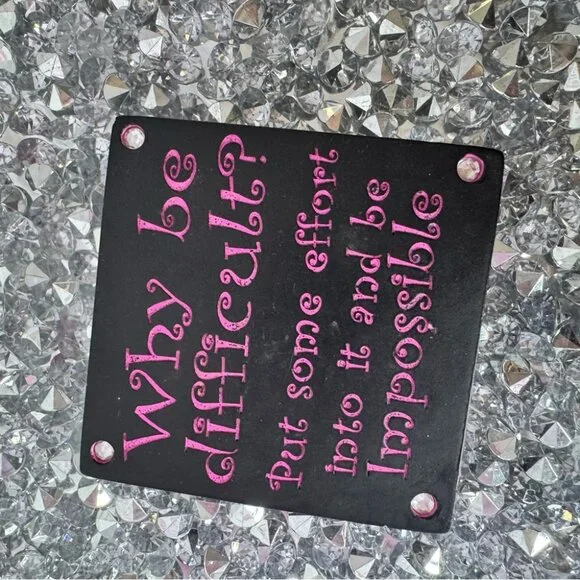 Why be
difficult?
Put some effort
into it and be
Impossible